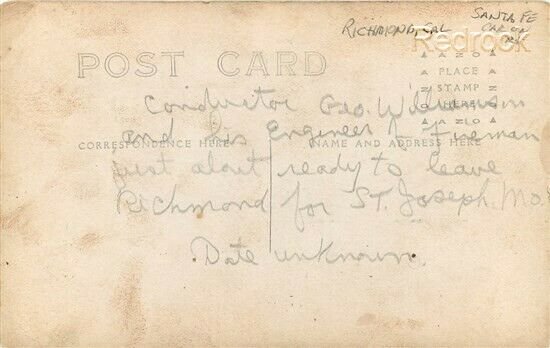 RICHMOND, CAL
SANTA FE
CAR ON
Redrock
POST CARD
AZO
PLACE
STAMP
HERE
AZO
CORRESPONDENCE HERE
NAME AND ADDRESS HERE
Conductor Geo. Williamson
and his Engineer & Fireman
just about ready to leave
Richmond for ST. Joseph. Mo.
Date unknown.